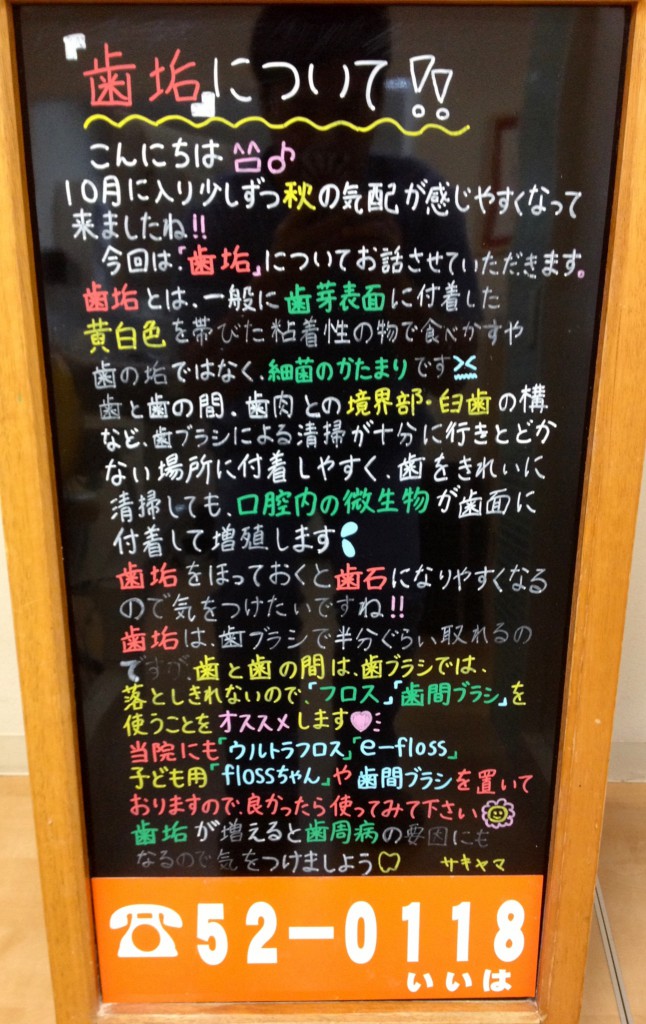 『歯垢』について!!
こんにちは♪
10月に入り少しずつ秋の気配が感じやすくなって
来ましたね!!
今回は、「歯垢」についてお話させていただきます。
歯垢とは、一般に歯芽表面に付着した
黄白色を帯びた粘着性の物で食べかすや
歯の垢ではなく、細菌のかたまりです
歯と歯の間、歯肉との境界部・臼歯の構
など、歯ブラシによる清掃が十分に行きとどか
ない場所に付着しやすく、歯をきれいに
清掃しても、口腔内の微生物が歯面に
付着して増殖します
歯垢をほっておくと歯石になりやすくなる
ので気をつけたいですね!!
歯垢は、歯ブラシで半分ぐらい取れるの
ですが、歯と歯の間は、歯ブラシでは、
落としきれないので、「フロス」「歯間ブラシ」を
使うことをオススメします
当院にも「ウルトラフロス」「e-floss」
子ども用「flossちゃん」や歯間ブラシを置いて
おりますので、良かったら使ってみて下さい
歯垢が増えると歯周病の要因にも
なるので気をつけましょう
サキヤマ
☎52-0118
いいは